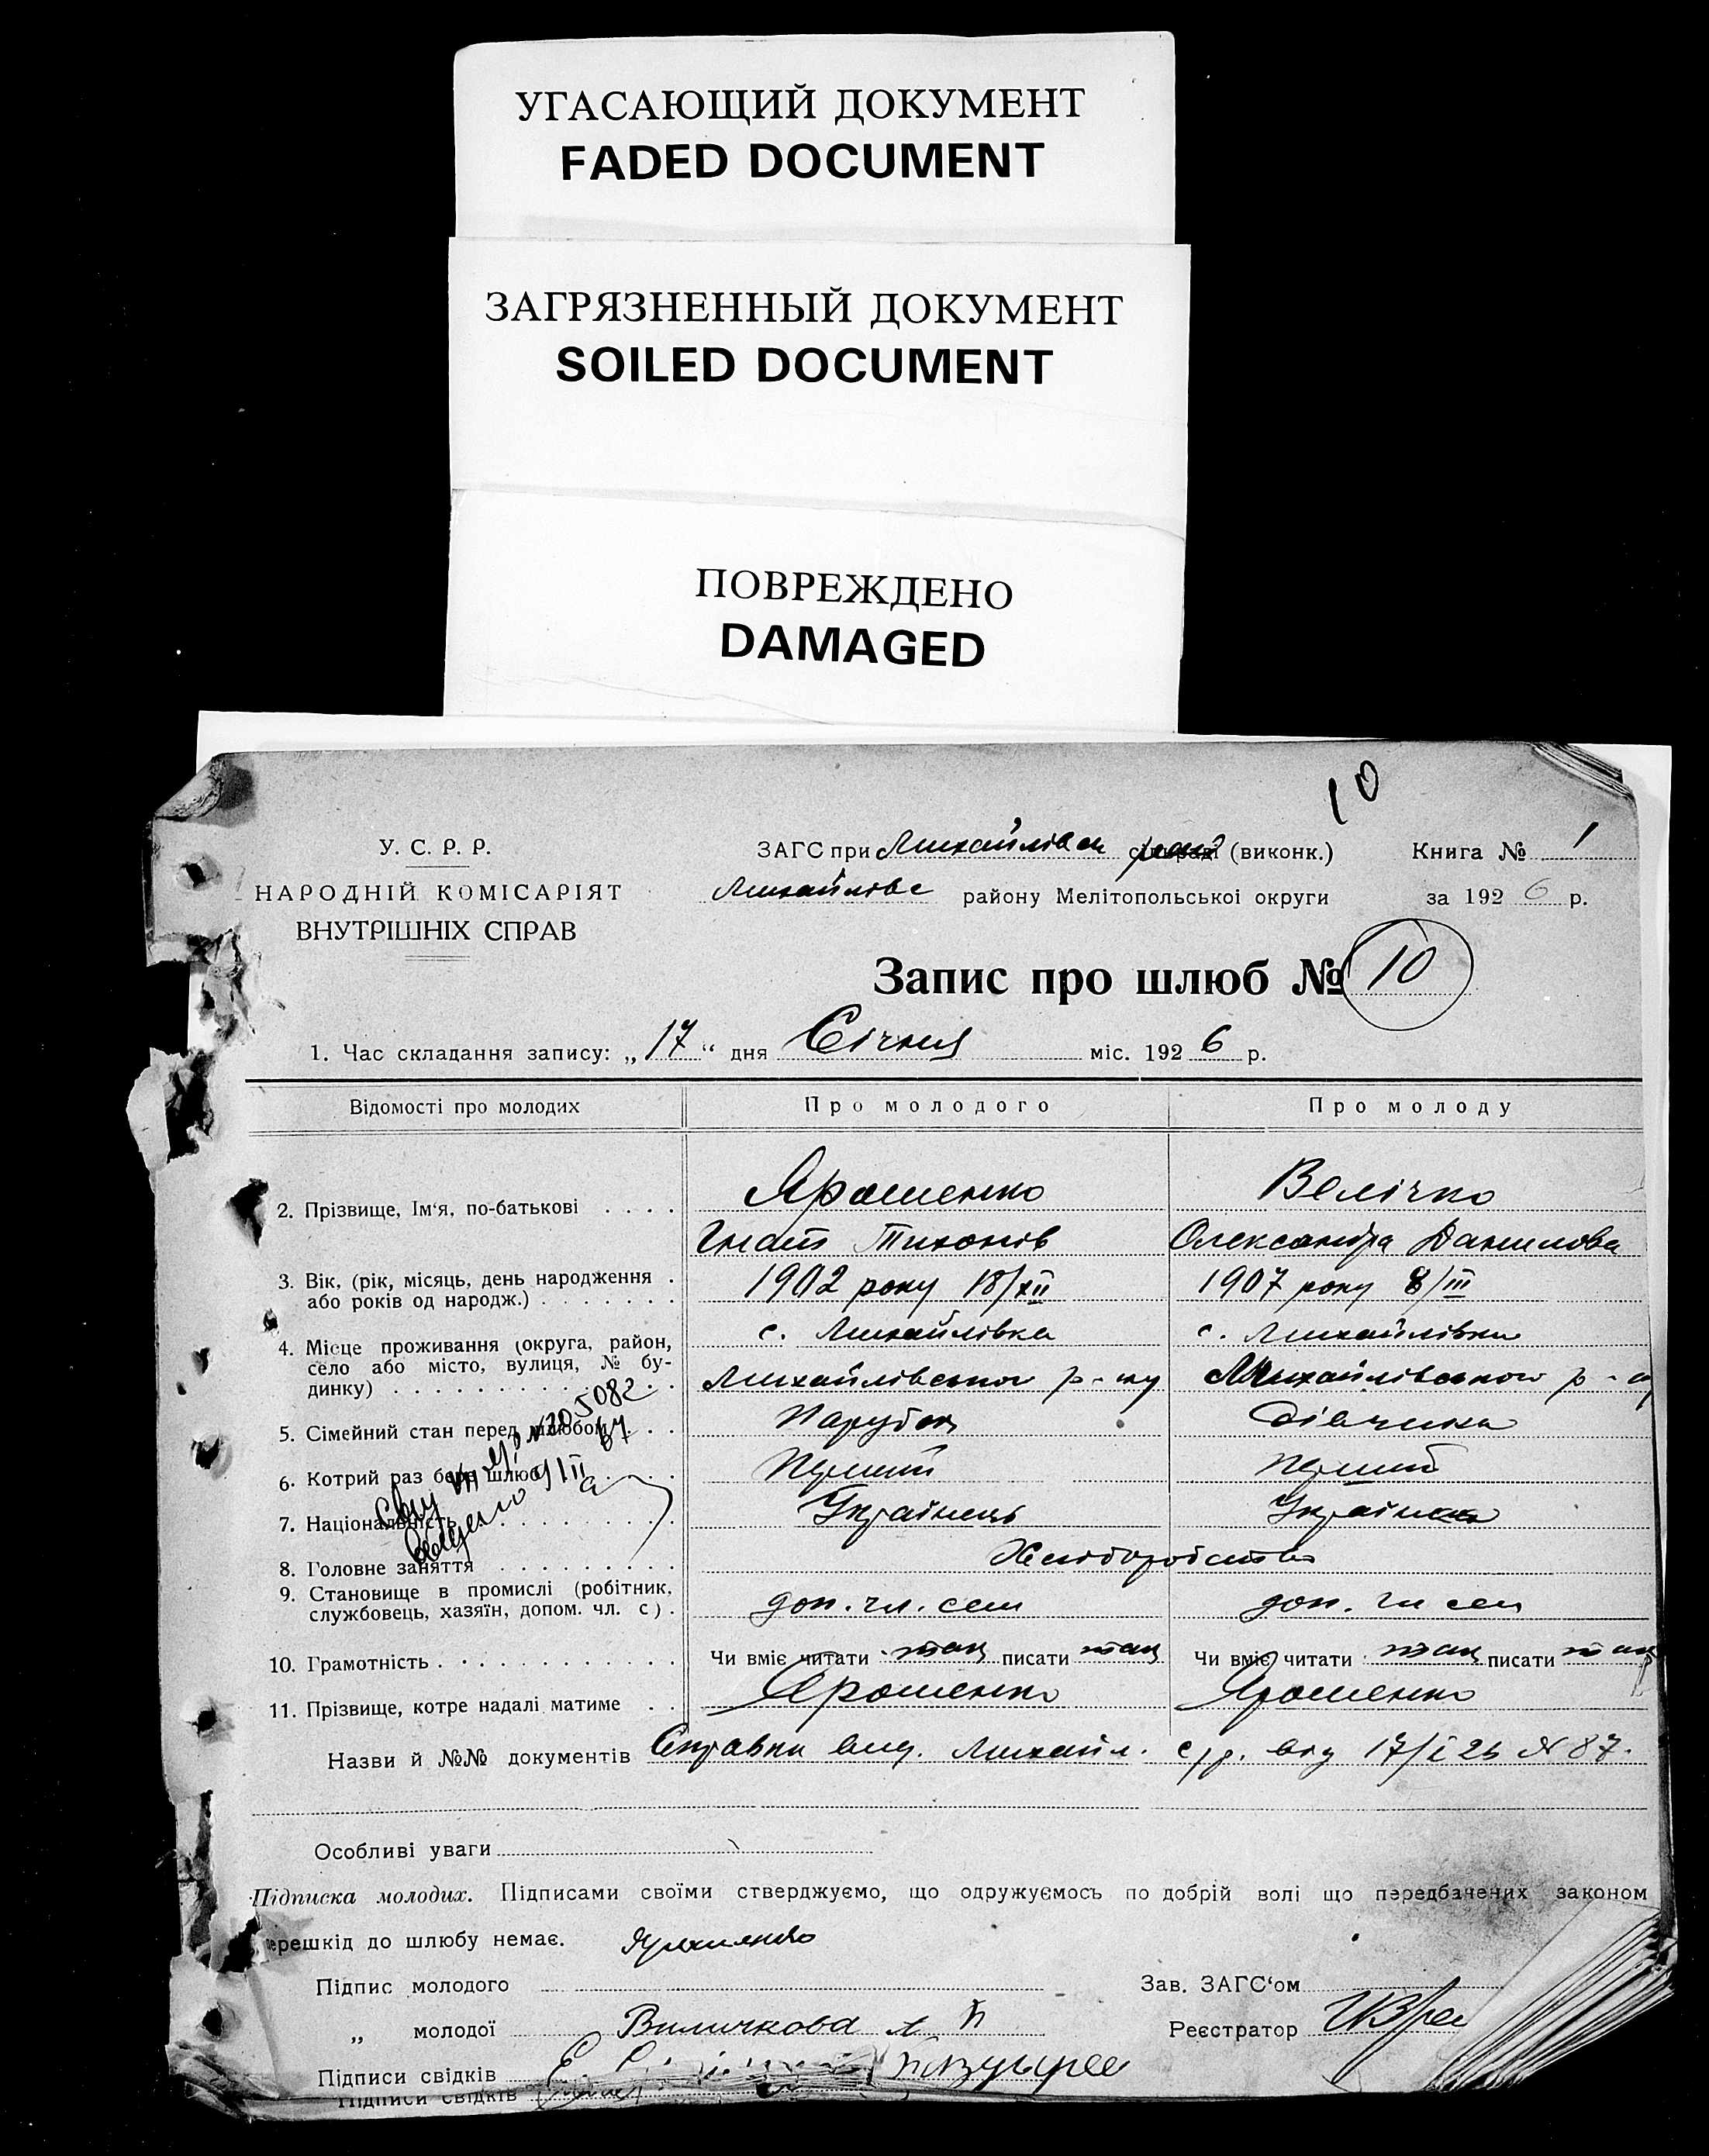 УГАСАЮЩИЙ ДОКУМЕНТ
FADED DOCUMENT
ЗАГРЯЗНЕННЫЙ ДОКУМЕНТ
SOILED DOCUMENT
ПОВРЕЖДЕНО
DAMAGED
10
У. С. Р. Р.
НАРОДНІЙ КОМІСАРІЯТ
ВНУТРІШНІХ СПРАВ
ЗАГС при Михайлівськ (виконк.)
Книга № 1
Михайлівс району Мелітопольської округи
за 1926 р.
Запис про шлюб № 10
1. Час складання запису: „17“ дня Січня міс. 1926 р.
Відомості про молодих Про молодого Про молоду
2. Прізвище, Ім'я, по-батькові Ярошенко Велічко
Гнат Тихонів Олександра Данилова
3. Вік, (рік, місяць, день народження 1902 року 18/XII 1907 року 8/III
або років од народж.)
4. Місце проживання (округа, район, с. Михайлівка с. Михайлівка
село або місто, вулиця, № бу-
динку) Михайлівського р-ну Михайлівського р-н
5. Сімейний стан перед шлюбом Парубок Дівчина
6. Котрий раз бере шлюб Перший Перший
7. Національність Українець Українка
8. Головне заняття Хліборобство
9. Становище в промислі (робітник,
службовець, хазяїн, допом. чл. с) доп. чл. сем доп. чл сем
10. Грамотність Чи вміє читати так писати так Чи вміє читати так писати так
11. Прізвище, котре надалі матиме Ярошенко Ярошенко
Назви й №№ документів Справки вид. Михайл. с/р. від 17/I 26 № 87.
Особливі уваги
Підписка молодих. Підписами своїми стверджуємо, що одружуємось по добрій волі що передбачених законом
перешкід до шлюбу немає. Ярошенко
Підпис молодого
Зав. ЗАГС'ом
„ молодої Виличкова
Реєстратор
Підписи свідків
Підписи свідків